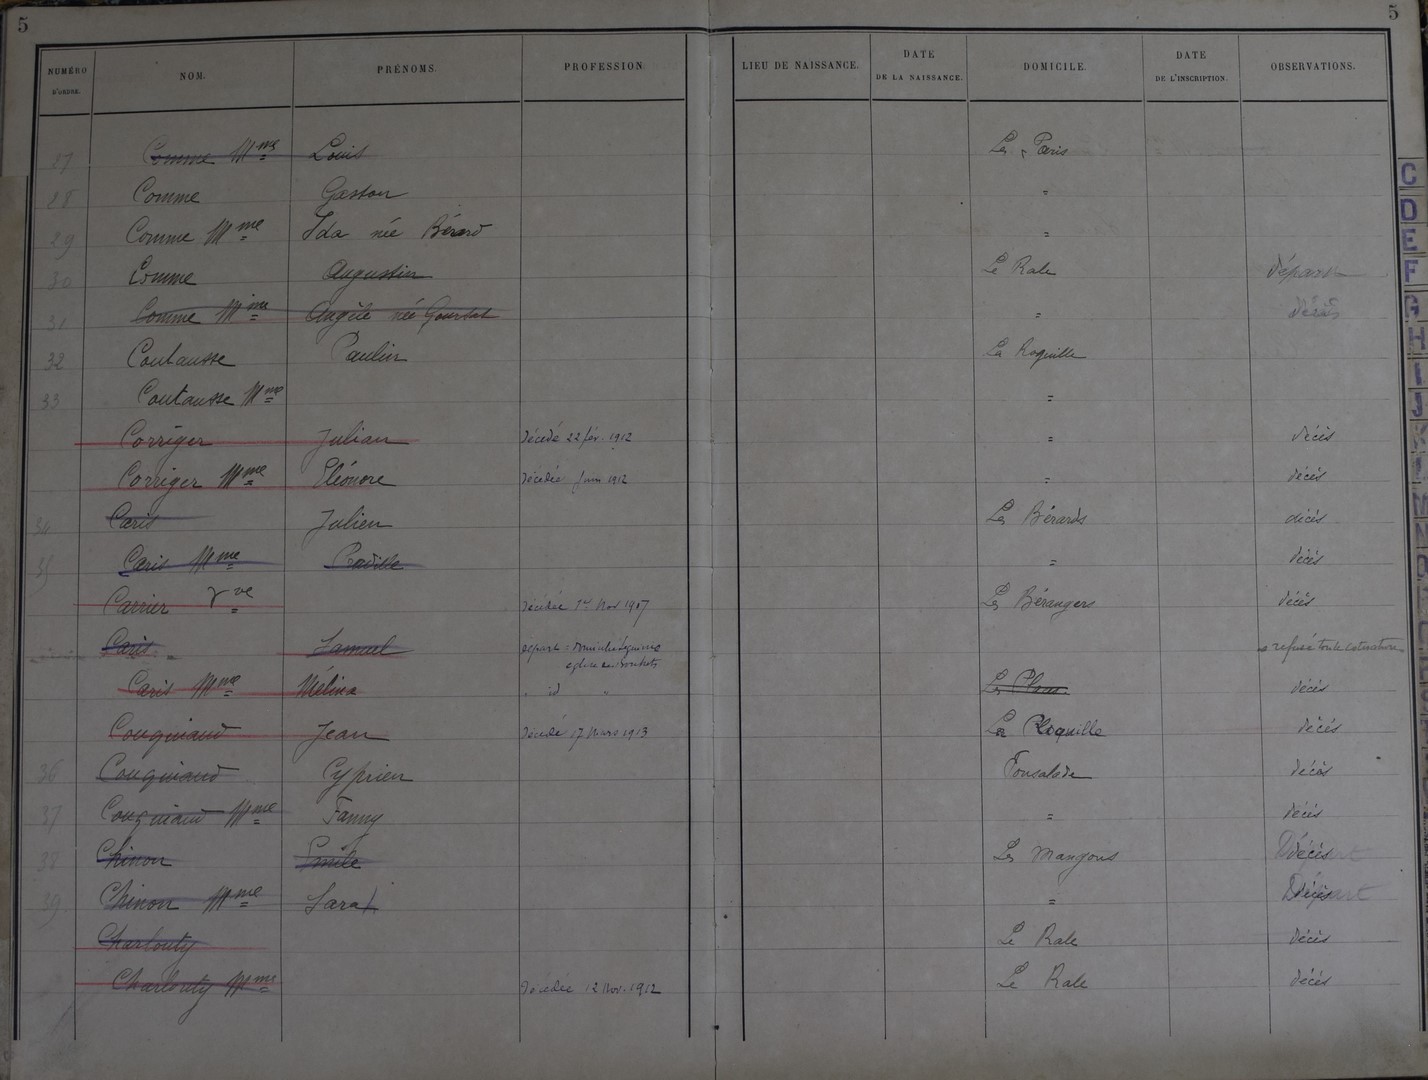 5 5
NUMÉRO D'ORDRE. NOM. PRÉNOMS. PROFESSION. LIEU DE NAISSANCE. DATE DE LA NAISSANCE. DOMICILE. DATE DE L'INSCRIPTION. OBSERVATIONS.
27 Comme Mme Louis Les Paris
28 Comme Gaston "
29 Comme Mme Ida née Bérard "
30 Comme Augustin Le Rale Départ
31 Comme Mme Angèle née "
32 Coutausse Paulin La Roquille
33 Coutausse Mme "
Corriger Julian Décédé 22 fév. 1912 " décès
Corriger Mme Eléonore Décédée Juin 1912 " décès
34 Caris Julien Les Bérards décès
35 Caris Mme " décès
Carrier Vve Décédée 1er Nov 1907 Les Bérangers décès
Caris Samuel départ a refusé toute cotisation
Caris Mme Mélina " id " Les décès
Couquiaud Jean Décédé 17 Mars 1913 La Roquille décès
36 Couquiaud Cyprien Fonsalade décès
37 Couquiaud Mme Fanny " décès
38 Chinou Emile Les Mangons Départ décès
39 Chinou Mme Sara " Départ décès
Charlouty Le Rale décès
Charlouty Mme Décédée 12 Nov. 1912 Le Rale décès
C
D
E
F
G
H
I
J
K
L
M
N
O